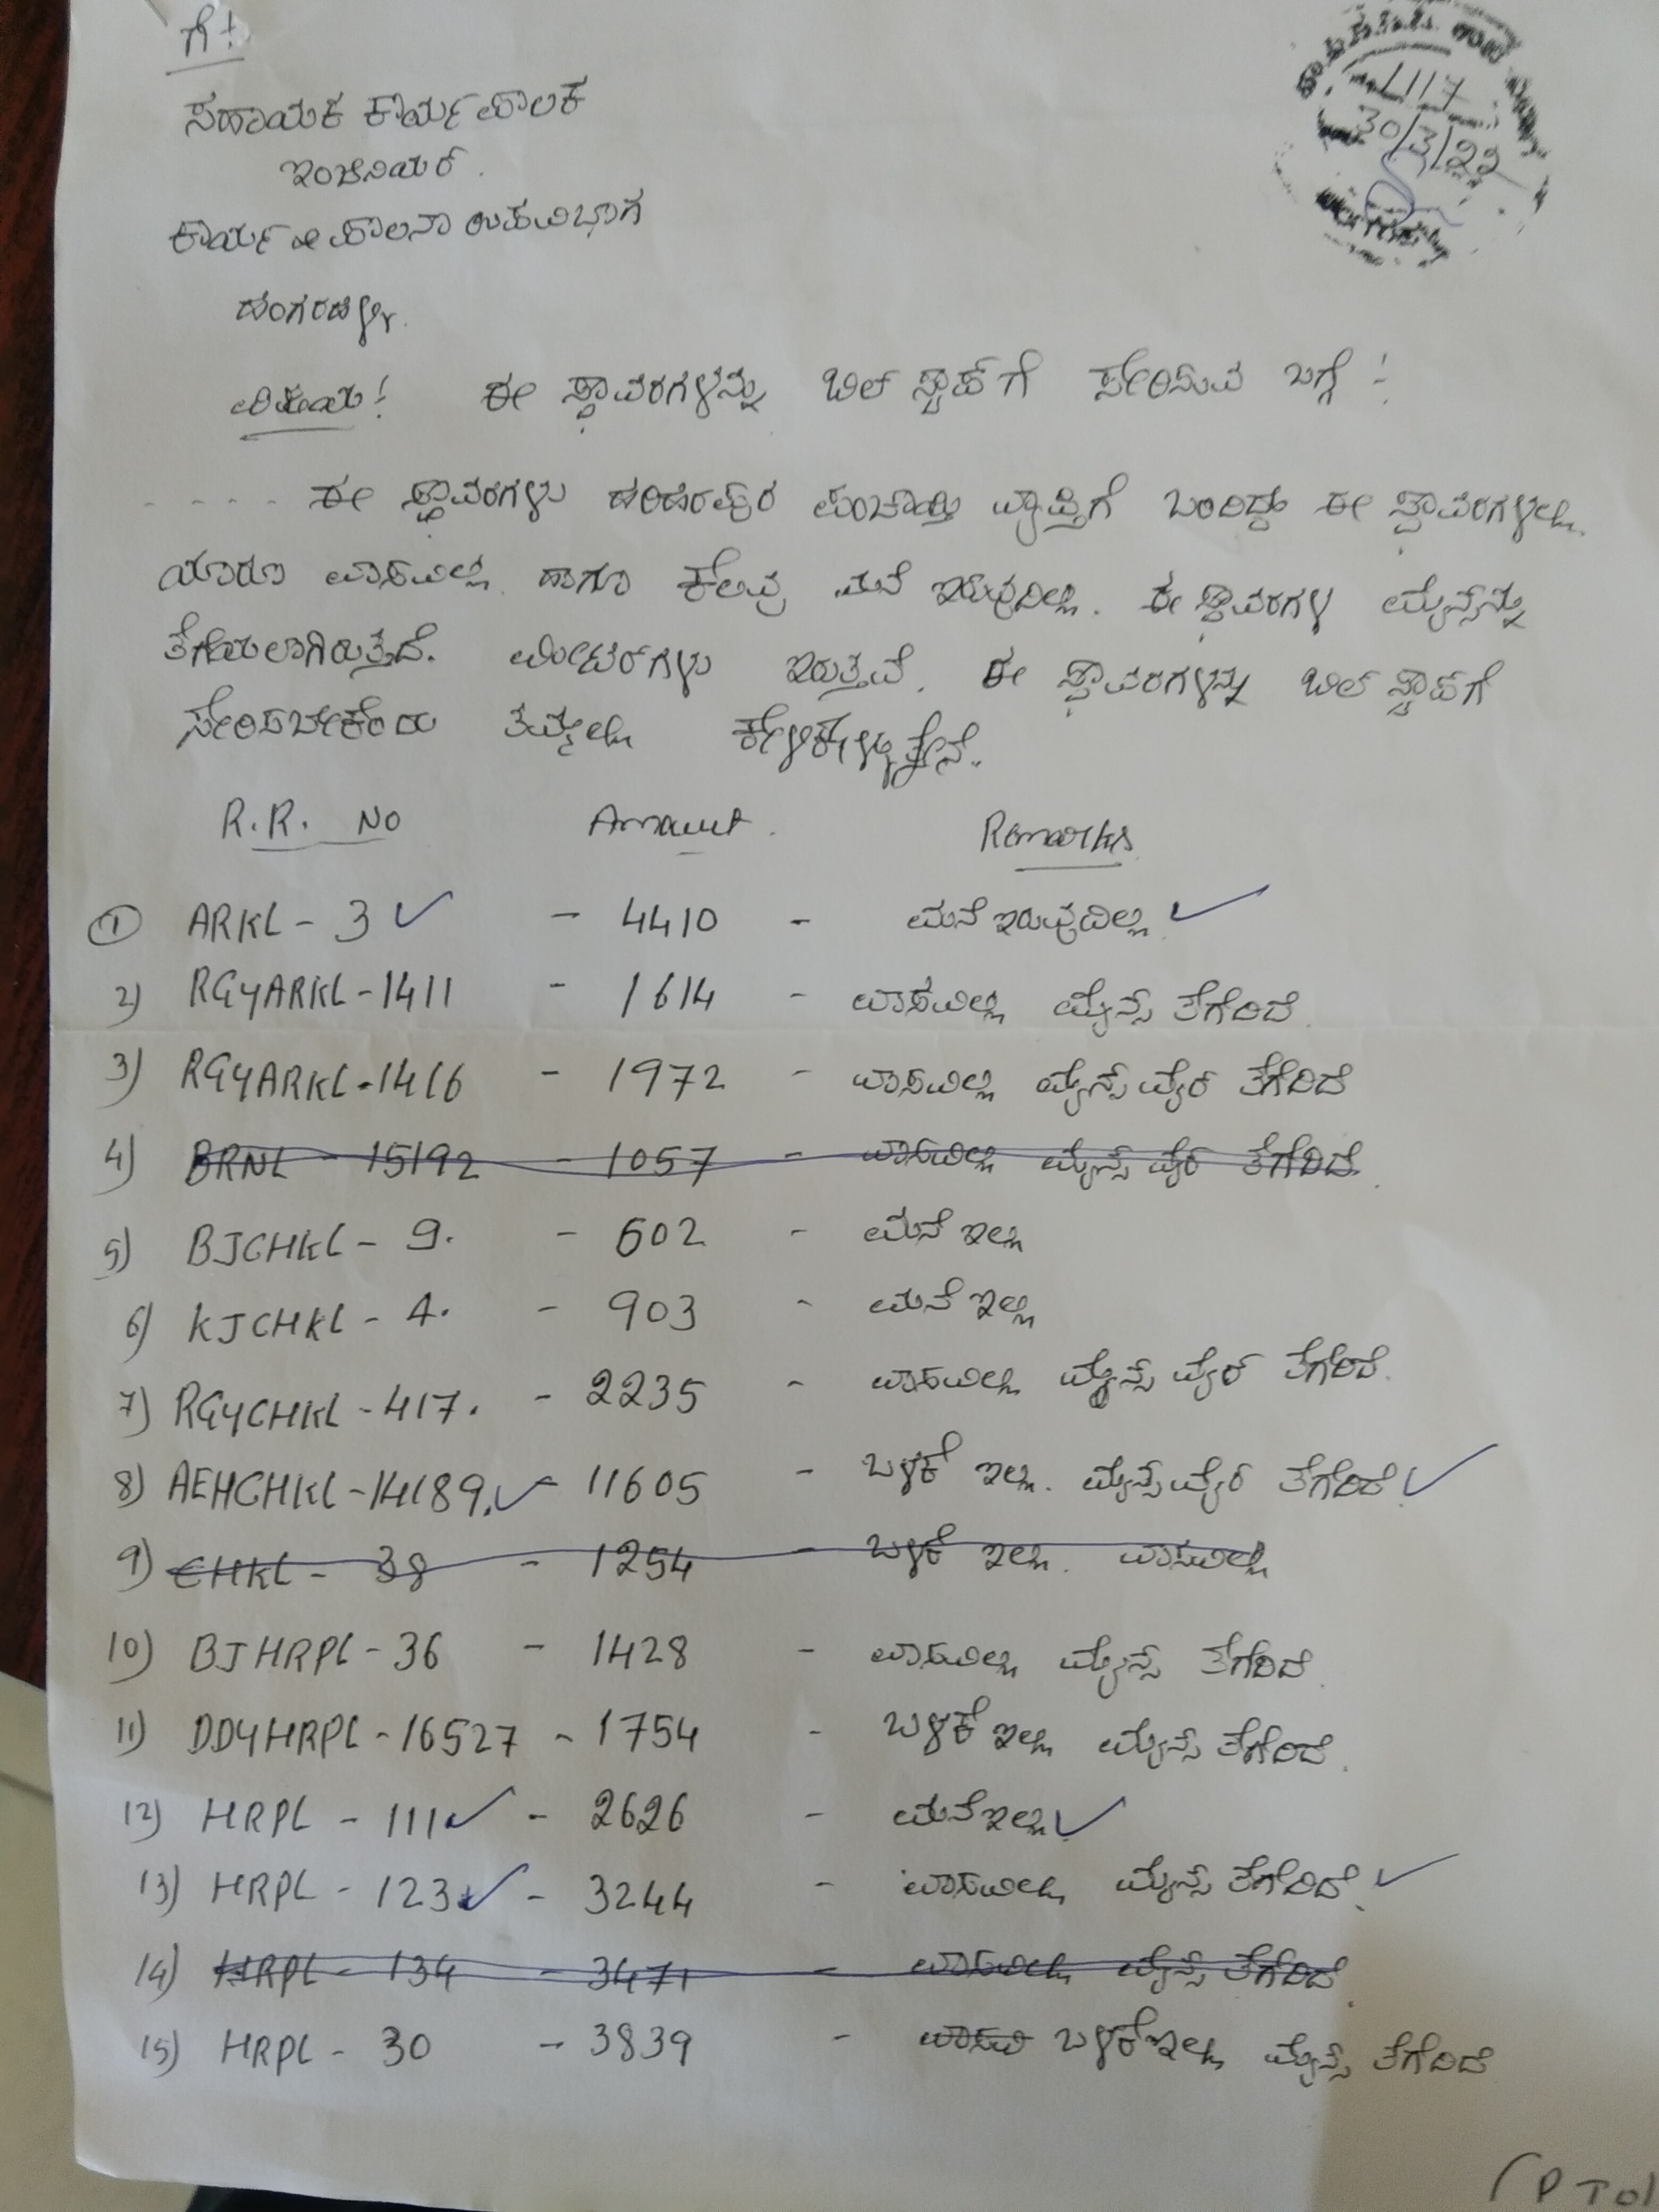 ಗೆ!
ಸಹಾಯಕ ಕಾರ್ಯಪಾಲಕ
ಇಂಜಿನಿಯರ್.
ಕಾರ್ಯ ಪಾಲನಾ ಉಪವಿಭಾಗ
4117
30/3/22
ವಿಷಯ! ಈ ಸ್ಥಾವರಗಳನ್ನು ಬಿಲ್ ಸ್ಟಾಪ್ ಗೆ ಸೇರಿಸುವ ಬಗ್ಗೆ :
---- ಈ ಸ್ಥಾವರಗಳು ಹರಿಹರಪುರ ಪಂಚಾಯ್ತಿ ವ್ಯಾಪ್ತಿಗೆ ಬಂದಿದ್ದು ಈ ಸ್ಥಾವರಗಳಲ್ಲಿ
ಯಾರೂ ವಾಸವಿಲ್ಲ ಹಾಗೂ ಕೆಲವು ಮನೆ ಇರುವುದಿಲ್ಲ. ಈ ಸ್ಥಾವರಗಳ ಮೈನ್ಸನ್ನು
ತೆಗೆಯಲಾಗಿರುತ್ತದೆ. ಮೀಟರ್ ಗಳು ಇರುತ್ತವೆ. ಈ ಸ್ಥಾವರಗಳನ್ನು ಬಿಲ್ ಸ್ಟಾಪ್ ಗೆ
ಸೇರಿಸಬೇಕೆಂದು ತಮ್ಮಲ್ಲಿ ಕೇಳಿಕೊಳ್ಳುತ್ತೇನೆ.
R.R. No Amount. Remarks
① ARKL - 3 ✓ - 4410 - ಮನೆ ಇರುವುದಿಲ್ಲ ✓
2) RGYARKL - 1411 - 1614 - ವಾಸವಿಲ್ಲ ಮೈನ್ಸ್ ತೆಗೆದಿದೆ.
3) RGYARKL - 1416 - 1972 - ವಾಸವಿಲ್ಲ ಮೈನ್ಸ್ ವೈರ್ ತೆಗೆದಿದೆ
4) BRNL - 15192 - 1057 - ವಾಸವಿಲ್ಲ ಮೈನ್ಸ್ ವೈರ್ ತೆಗೆದಿದೆ.
5) BJCHKL - 9. - 602 - ಮನೆ ಇಲ್ಲ
6) KJCHKL - 4. - 903 - ಮನೆ ಇಲ್ಲ
7) RGYCHKL - 417. - 2235 - ವಾಸವಿಲ್ಲ ಮೈನ್ಸ್ ವೈರ್ ತೆಗೆದಿದೆ.
8) AEHCHKL - 14189. ✓ - 11605 - ಬಳಕೆ ಇಲ್ಲ. ಮೈನ್ಸ್ ವೈರ್ ತೆಗೆದಿದೆ ✓
9) CHKL - 38 - 1254 - ಬಳಕೆ ಇಲ್ಲ. ವಾಸವಿಲ್ಲ
10) BJHRPL - 36 - 1428 - ವಾಸವಿಲ್ಲ ಮೈನ್ಸ್ ತೆಗೆದಿದೆ.
11) DDYHRPL - 16527 - 1754 - ಬಳಕೆ ಇಲ್ಲ ಮೈನ್ಸ್ ತೆಗೆದಿದೆ.
12) HRPL - 111 ✓ - 2626 - ಮನೆ ಇಲ್ಲ ✓
13) HRPL - 123 ✓ - 3244 - ವಾಸವಿಲ್ಲ ಮೈನ್ಸ್ ತೆಗೆದಿದೆ. ✓
14) HRPL - 134 - 3471 - ವಾಸವಿಲ್ಲ ಮೈನ್ಸ್ ತೆಗೆದಿದೆ.
15) HRPL - 30 - 3839 - ವಾಸವಿ ಬಳಕೆ ಇಲ್ಲ ಮೈನ್ಸ್ ತೆಗೆದಿದೆ
(PTO)